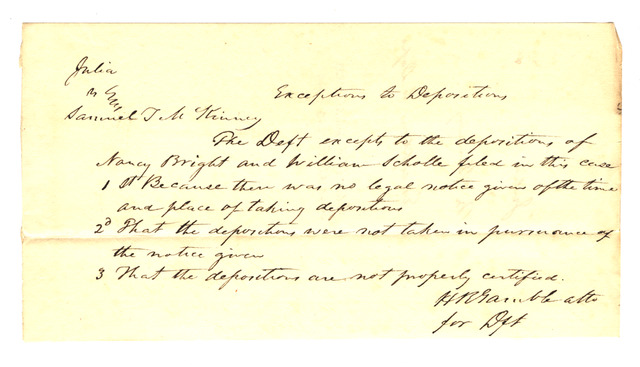 Julia
vs
Samuel T McKinney
Exceptions to Depositions
The Deft excepts to the depositions of
Nancy Bright and William Scholle filed in this case
1st Because there was no legal notice given of the time
and place of taking depositions
2d That the depositions were not taken in pursuance of
the notice given
3 That the depositions are not properly certified.
HR Gamble atto
for Dft